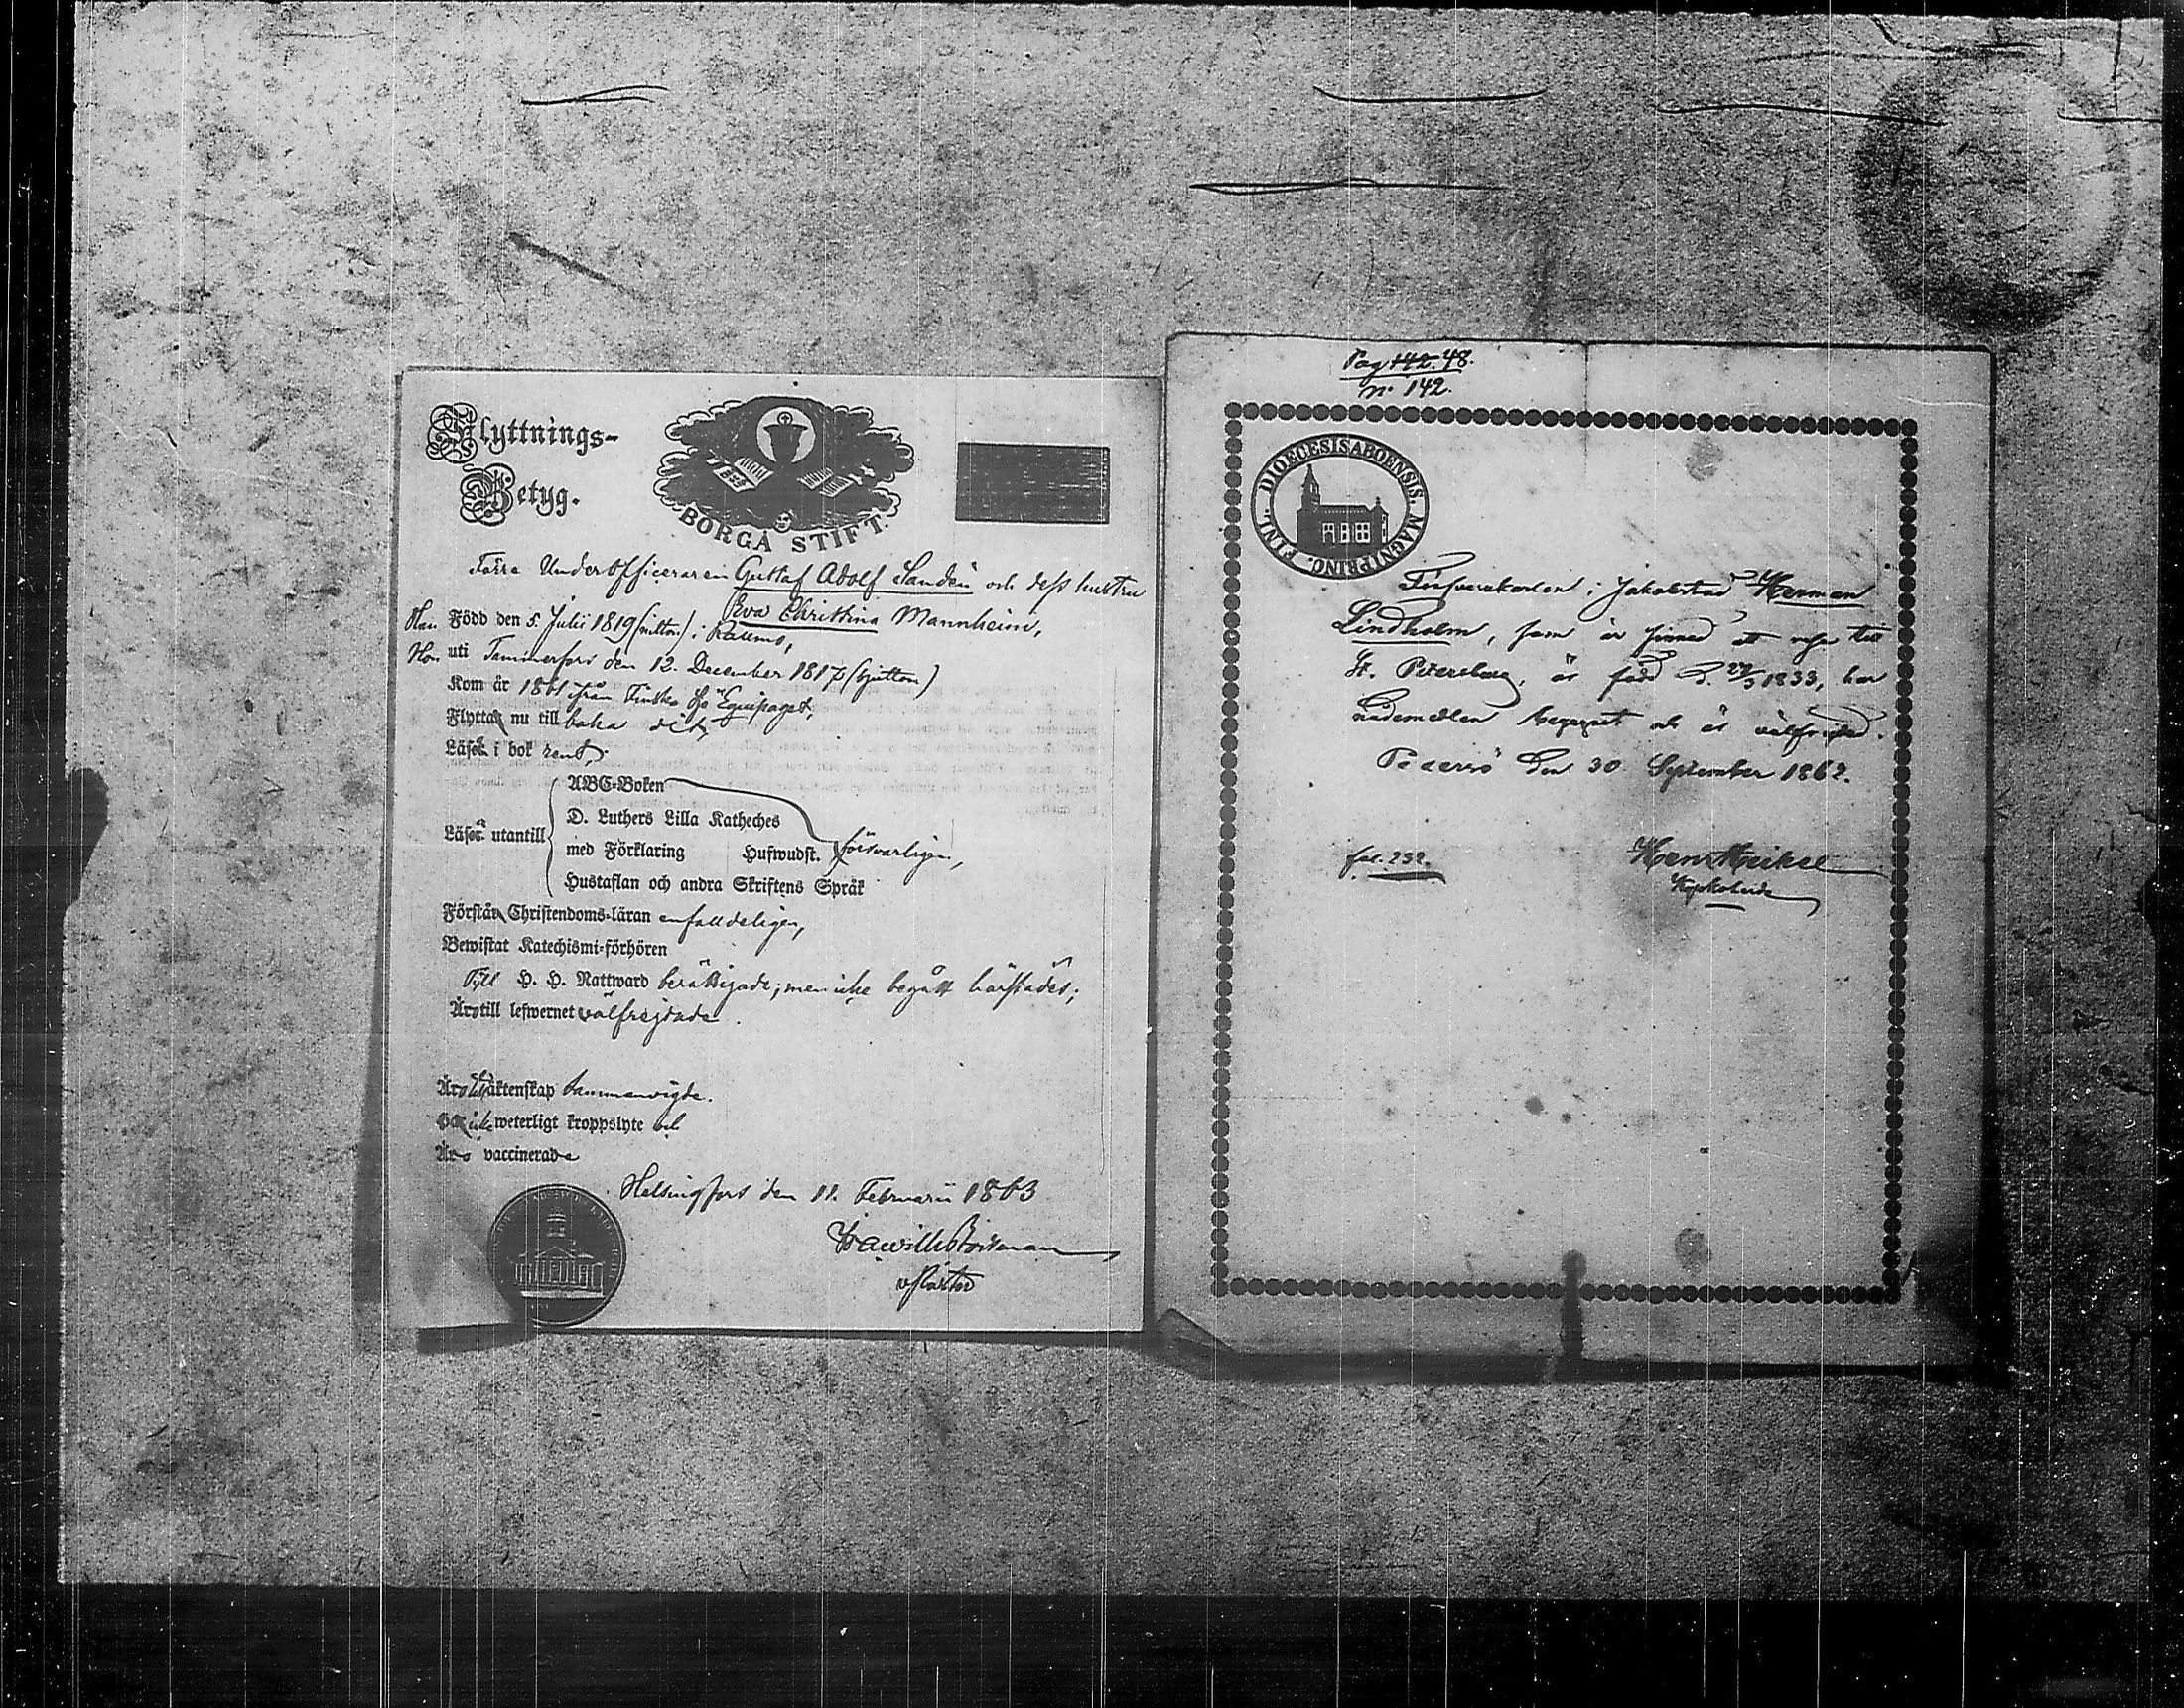 Flyttnings-
Betyg.
1828
BORGÅ STIFT.
Förre Underofficeraren Gustaf Adolf Sandén och dess hustru
Eva Christina Mannheim,
Han Född den 5 Julii 1819 (nitton) i Raumo,
Hon uti Tammerfors den 12. December 1817 (sjutton)
Kom år 1861 från Finska Sjö Equipaget,
Flytta nu till baka dit,
Läsa i bok rent,
ABC-Boken
D. Luthers Lilla Katheches
Läsa utantill med Förklaring Hufwudst. försvarligen,
Hustaflan och andra Skriftens Språk
Förstå Christendoms-läran enfalldeligen,
Bewistat Katechismi-förhören
Till H. H. Nattward berättigade; men icke begått härstädes;
Äro till lefwernet välfrejdade.
Äro äktenskap sammanvigde.
icke weterligt kroppslyte
Äro vaccinerade
Helsingfors den 11. Februarii 1863
v. Pastor
Pag 142. 48.
No 142.
DIOECESIS ABOENSIS. MAGNI PRINC. FINL.
i Jakobstad Herman
Lindholm, som är sinnad att resa till
St. Petersburg, är född d. 29/3 1833, har
nademedlen begagnat och är välfrejdad.
Pedersö den 30 September 1862.
fol. 232.